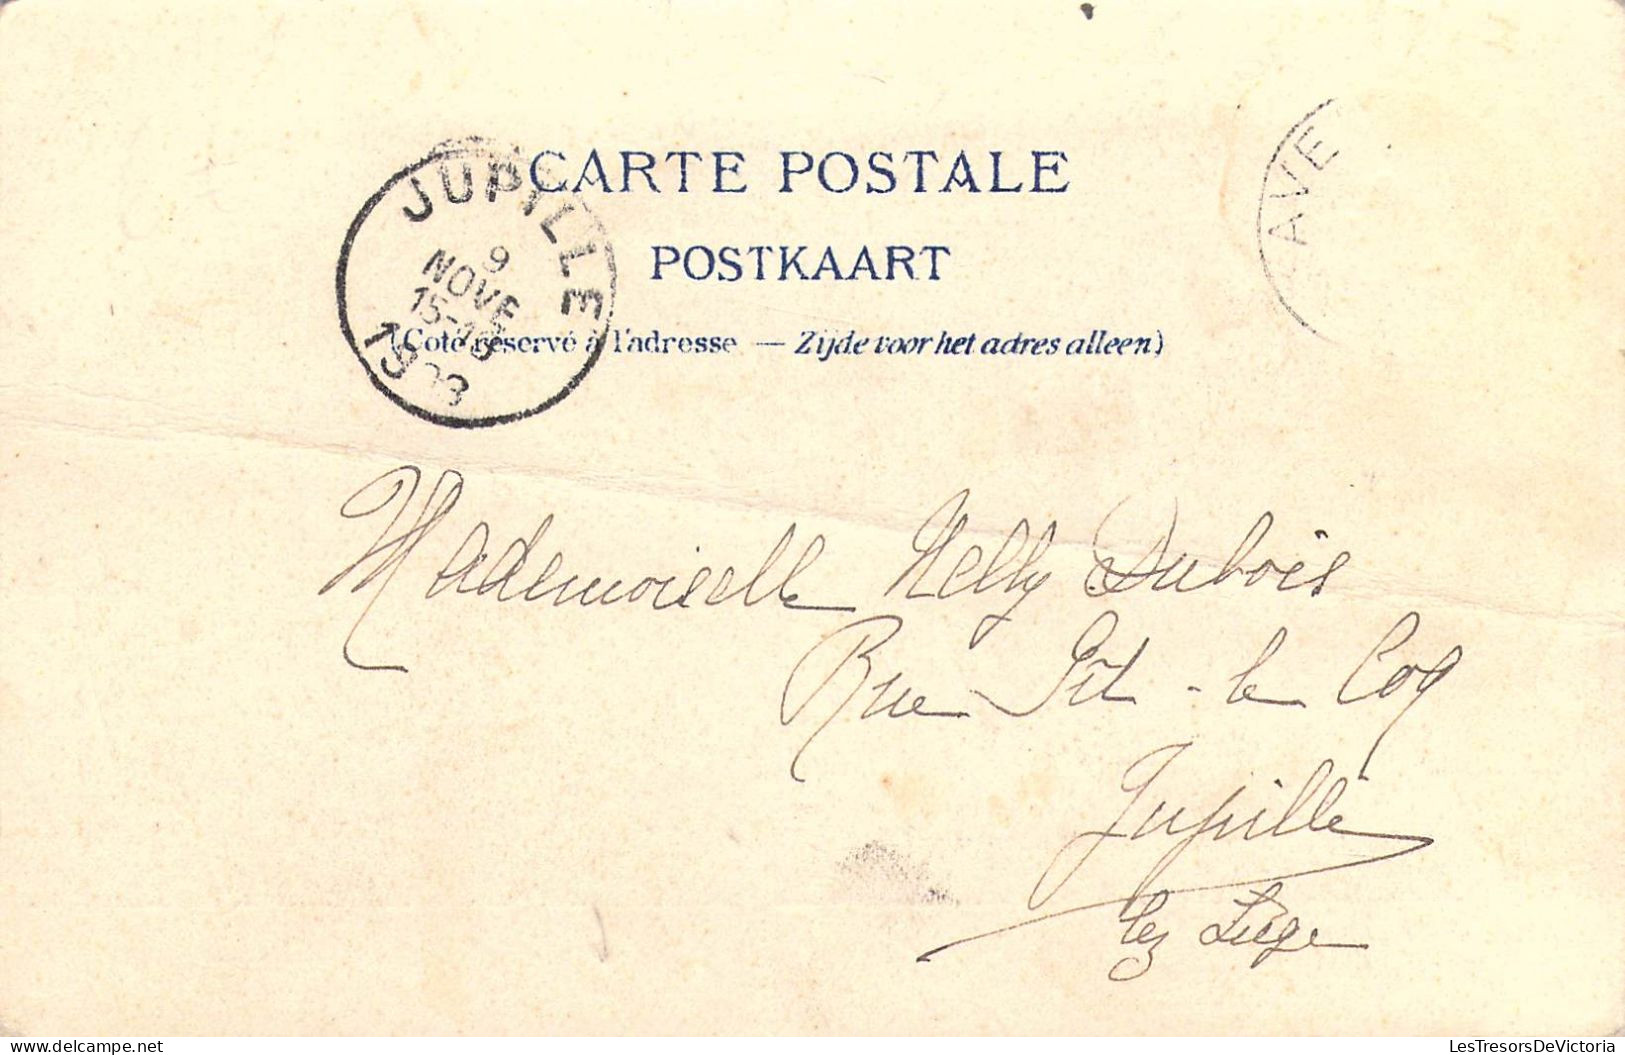 CARTE POSTALE
POSTKAART
(Coté réservé à l'adresse — Zijde voor het adres alleen)
JUPILLE
9
NOVE
15-
1903
AVE
Mademoiselle Nelly Dubois
Rue Gît-le Coq
Jupille
lez Liège
LesTresorsDeVictoria
www.delcampe.net